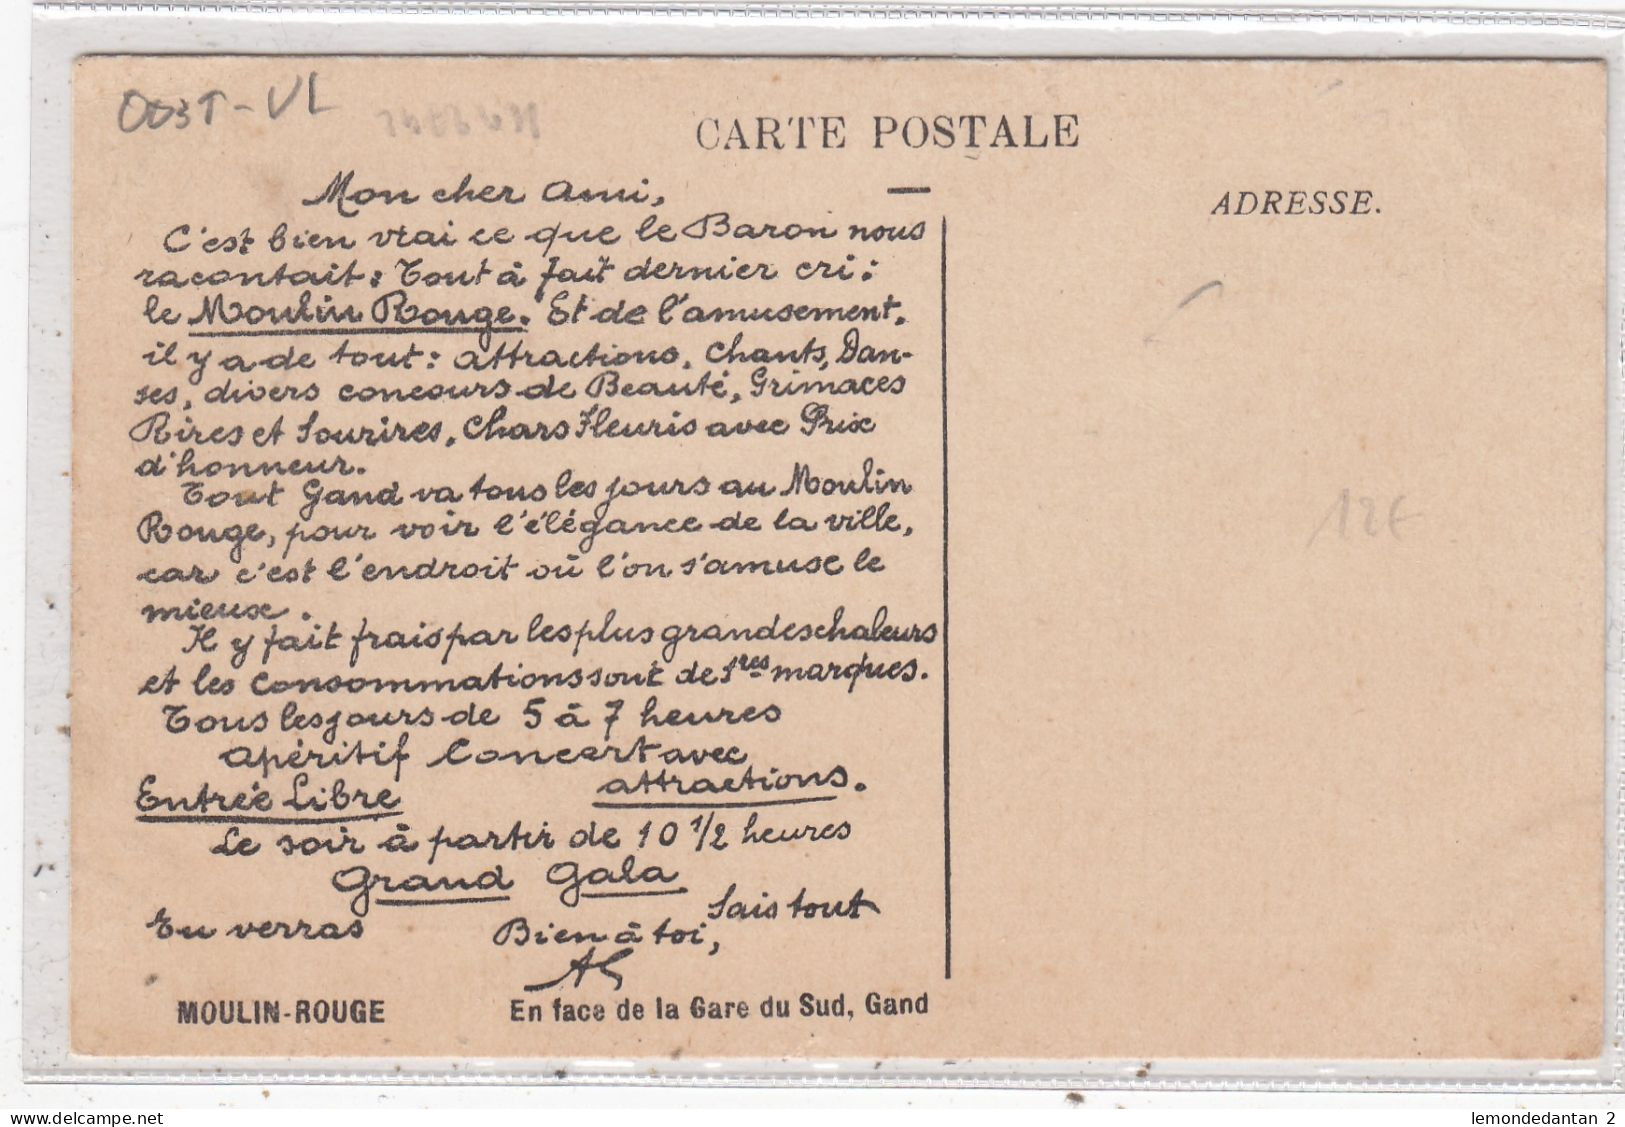 OOST-VL
CARTE POSTALE
ADRESSE.
Mon cher Ami,
C'est bien vrai ce que le Baron nous
racontait: Tout à fait dernier cri:
le Moulin Rouge. Et de l'amusement,
il y a de tout: attractions, Chants, Dan-
ses, divers concours de Beauté, Grimaces
Rires et Sourires, Chars Fleuris avec Prix
d'honneur.
Tout Gand va tous les jours au Moulin
Rouge, pour voir l'élégance de la ville,
car c'est l'endroit où l'on s'amuse le
mieux.
Il y fait frais par les plus grandes chaleurs
et les Consommations sont de 1res marques.
Tous les jours de 5 à 7 heures
Apéritif Concert avec
attractions.
Entrée Libre
Le soir à partir de 10 1/2 heures
Grand Gala
Tu verras
Sais tout
Bien à toi,
MOULIN-ROUGE
En face de la Gare du Sud, Gand
12€
delcampe.net
lemondedantan 2